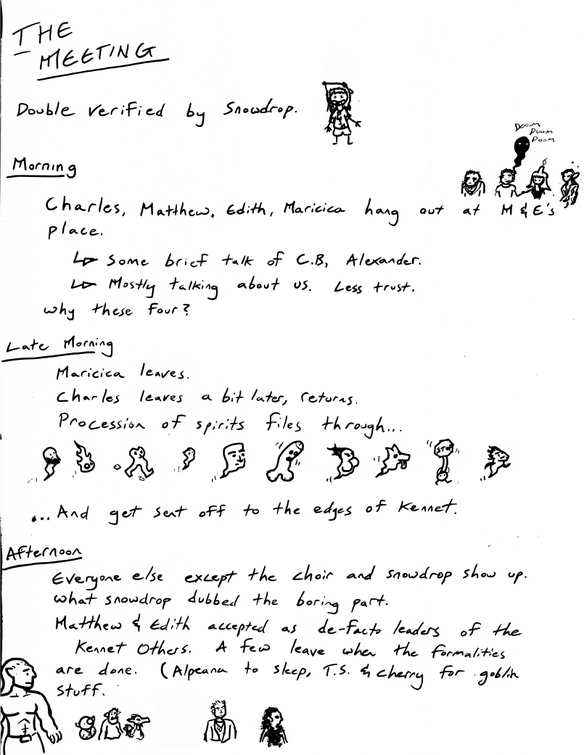 THE
MEETING
Double verified by Snowdrop.
DOOM
DOOM
DOOM
Morning
Charles, Matthew, Edith, Maricica hang out at M & E's
place.
Some brief talk of C.B, Alexander.
Mostly talking about us. Less trust.
why these four?
Late Morning
Maricica leaves.
Charles leaves a bit later, returns.
Procession of spirits files through...
STOP
...And get sent off to the edges of Kennet.
Afternoon
Everyone else except the choir and snowdrop show up.
what snowdrop dubbed the boring part.
Matthew & Edith accepted as de-facto leaders of the
Kennet Others. A few leave when the formalities
are done. (Alpeana to sleep, T.S. & cherry for goblin
stuff.